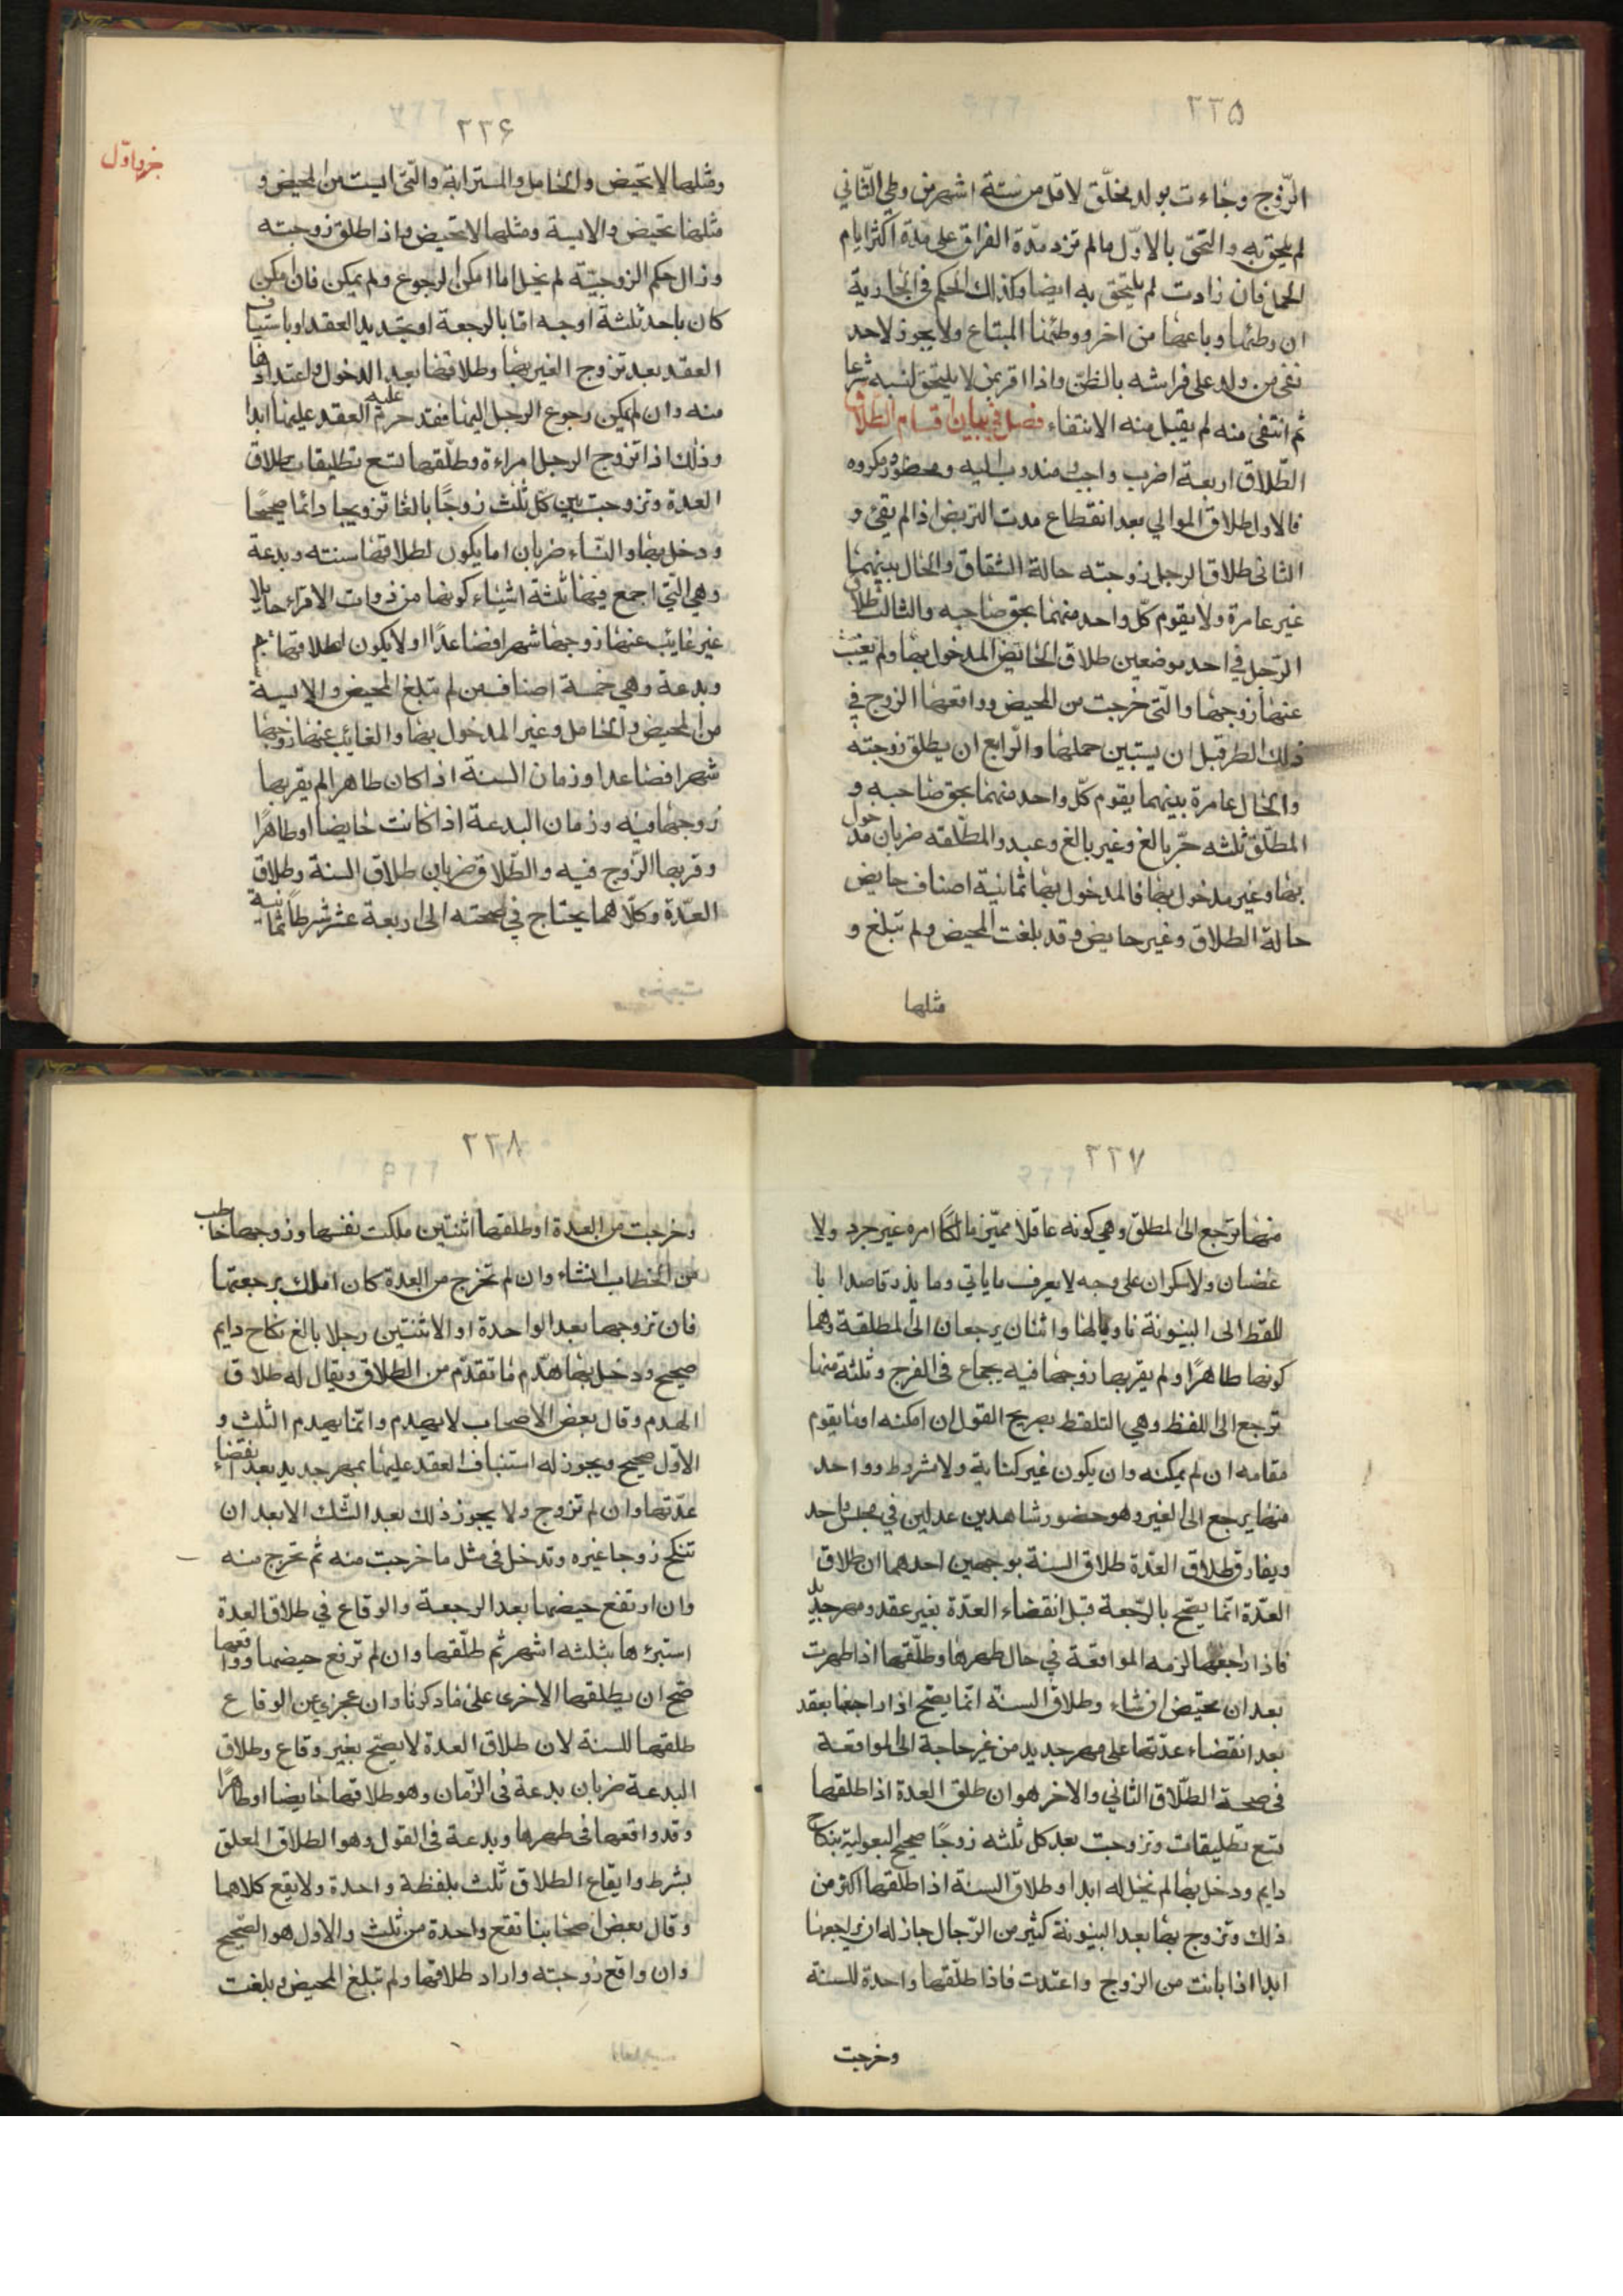 ٢٢٥
الزّوج وجاءت بولد بخلّق لاقل من ستة اشهر من وطى الثّانى
لم يلحق به والتحق بالاوّل مالم تزد مدّة الفراق على مدة اكثر ايام
الحمل فان زادت لم يلتحق به ايضا وكذلك الحكم فى الجارية
ان وطئها وباعها من اخر ووطئها المبتاع ولا يجوز لاحد
نفى من ولد على فراشه بالظنّ واذا اقر بمن لا يلتحق لنسبه شرعا
ثم انتفى منه لم يقبل منه الانتفاء فصل في بيان اقسام الطلاق
الطّلاق اربعة اضرب واجب ومندوب اليه ومحضور ومكروه
فالاول طلاق الموالي بعد انقطاع مدت التربص اذا لم يفئ و
الثانى طلاق الرجل زوجته حالة الشقاق والحال بينهما
غير عامرة ولا يقوم كلّ واحد منهما بحق صاحبه والثالث طلاق
الرّجل في احد موضعين طلاق الحائض المدخول بها ولم يغيب
عنها زوجها والتى خرجت من المحيض وواقعها الزوج في
ذلك الطهر قبل ان يستبين حملها والرّابع ان يطلق زوجته
والحال عامرة بينهما يقوم كلّ واحد منهما بحق صاحبه و
المطلّق ثلثه حرّ بالغ وغير بالغ وعبد والمطلّقه ضربان مدخول
بها وغير مدخول بها فالمدخول بها ثمانية اصناف حايض
حالة الطلاق وغير حايض وقد بلغت المحيض ولم تبلغ و
مثلها
٢٢۶
جزو اوّل
ومثلها لا تحيض والحامل والمسترابة والتى ايست من المحيض و
مثلها تحيض والايسة ومثلها لا تحيض واذا طلق زوجته
وزال حكم الزوجيّة لم نخل اما امكن الرجوع ولم يمكن فان امكن
كان باحد ثلثة اوجه امّا بالرجعة او بتجديد العقد او باستيناف
العقد بعد تزوج الغير بها وطلاقها بعد الدخول واعتدادها
منه وان لم يمكن رجوع الرجل اليها فقد حرم عليه العقد عليها ابدا
وذلك اذا تزوج الرجل امراءة وطلّقها تسع تطليقات طلاق
العدة وتزوجت بين كل ثلث زوجًا بالغا تزويجا دائما صحيحًا
ودخل بها والنّساء ضربان اما يكون لطلاقها سنته وبدعة
وهي التى اجمع فيها ثلثة اشياء كونها من ذوات الاقراء حايلا
غير غايب عنها زوجها شهرا فصاعدًا او لا يكون لطلاقها سنة
وبدعة وهي خمسة اصناف من لم تبلغ المحيض والايسة
من المحيض والحامل وغير المدخول بها والغائب عنها زوجها
شهرا فصاعدا وزمان السنة اذا كان طاهرا لم يقربها
زوجها فيه وزمان البدعة اذا كانت حايضا او طاهرًا
وقربها الزّوج فيه والطّلاق ضربان طلاق السنة وطلاق
العدّة وكلّاهما يحتاج في صحته الى اربعة عشر شرطاً ثمانية
٢٢٧
منها ترجع الى المطلق وهي كونه عاقلا مميّز مالكًا امره غير حرد ولا
غضبان ولا سكران على وجه لا يعرف ما ياتى وما يذر قاصدا با
للفظ الى البينونة ناويا لها واثنان يرجعان الى المطلقة وهما
كونها طاهرًا ولم يقربها زوجها فيه بجماع فى الفرج وثلثة منها
ترجع الى اللفظ وهي التلفظ بصريح القول ان امكنه او ما يقوم
مقامه ان لم يمكنه وان يكون غير كناية ولا مشروط وواحد
منها يرجع الى الغير وهو حضور شاهدين عدلين في مجلس واحد
ويفارق طلاق العدّة طلاق السنة بوجهين احدهما ان طلاق
العدّة انما يصّح بالرّجعة قبل انقضاء العدّة بغير عقد ومهر جديد
فاذا راجعها لزمه المواقعة في حال طهرها وطلّقها اذا طهرت
بعد ان تحيّض ان شاء وطلاق السنّة انّما يصّح اذا راجعها بعقد
بعد انقضاء عدّتها على مهر جديد من غير حاجة الى المواقعة
فى صحة الطّلاق الثاني والاخر هو ان طلق العدة اذا طلقها
تسع تطليقات وتزوجت بعد كل ثلثه زوجًا صحيح البعولية بنكاح
دايم ودخل بها لم تحلّ له ابدا وطلاق السنة اذا طلّقها اكثر من
ذلك وتزوج بها بعد البينونة كثير من الرّجال جاز له ان يراجعها
ابدا اذا بانت من الزوج واعتدت فاذا طلّقها واحدة للسنة
وخرجت
٢٢٨
وخرجت من العدة او طلقها اثنتين ملكت نفسها وزوجها خاطب
من الخطاب انشاء وان لم تخرج من العدة كان املك برجعتها
فان تزوجها بعد الواحدة او الاثنتين رجلا بالغ نكاح دايم
صحيح ودخل بها هدّم ما تقدّم من الطلاق ويقال له طلاق
الهدم وقال بعض الاصحاب لا يهدم وانّما يهدم الثلث و
الاوّل صحيح ويجوز له استيناف العقد عليها بمهر جديد بعد انقضاء
عدّتها وان لم تزوج ولا يجوز ذلك بعد الثلث الا بعد ان
تنكح زوجا غيره وتدخل فى مثل ما خرجت منه ثم تخرج منه
وان ارتفع حيضها بعد الرجعة والوقاع في طلاق العدة
استبرءها بثلثه اشهر ثم طلّقها وان لم ترفع حيضها وواقعها
صّح ان يطلقها الاخرى على ما ذكرنا وان عجز عن الوقاع
طلقها للسنة لان طلاق العدة لا يصّح بغير وقاع وطلاق
البدعة ضربان بدعة فى الزّمان وهو طلاقها حايضا او طاهرًا
وقد واقعها فى طهرها وبدعة فى القول وهو الطلاق المعلق
بشرط وايقاع الطلاق ثلث بلفظة واحدة ولا يقع كلاهما
وقال بعض اصحابنا تقع واحدة من ثلث والاول هو الصّحيح
وان واقع زوجته واراد طلاقها ولم تبلغ المحيض وبلغت